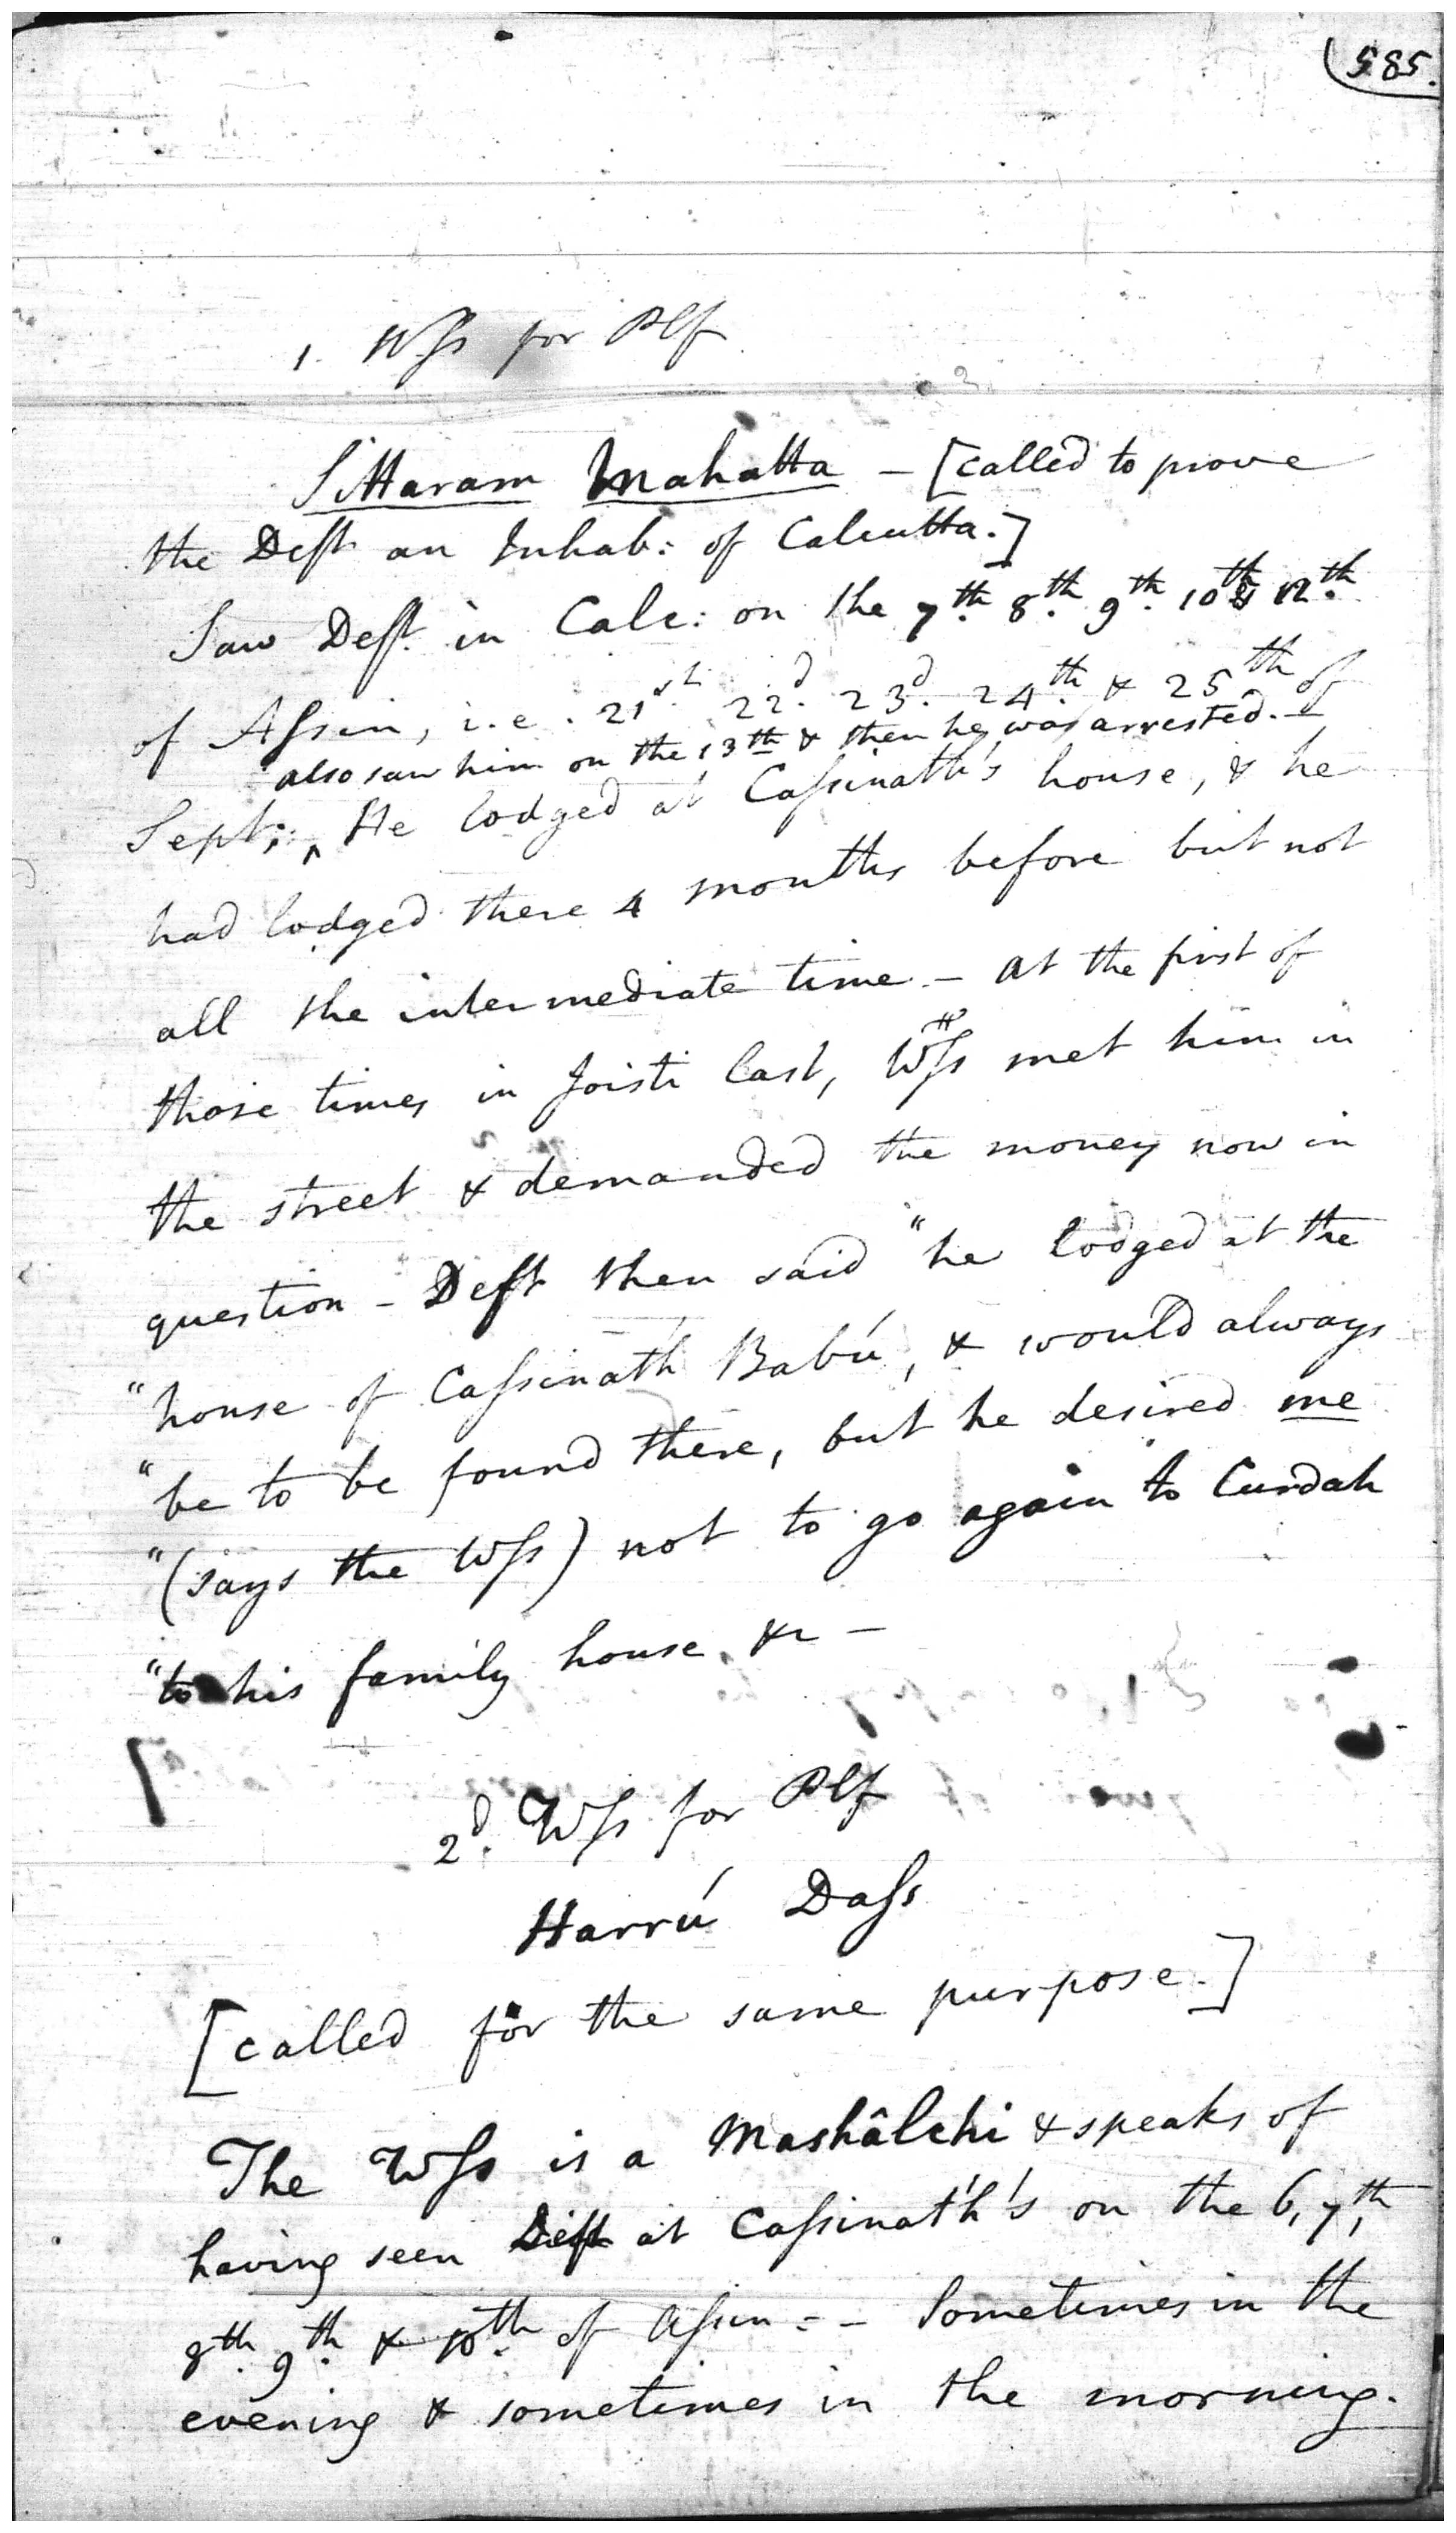 585.
1. Wſs for Plf
Sittaram Mahatta – [called to prove
the Deft an Inhab: of Calcutta.]
Saw Deft. in Calc: on the 7th. 8th. 9th. 10th & 12th.
of Aſsin, i.e. 21st. 22d. 23d. 24th. & 25th of
also saw him on the 13th & then he was arrested. –
Sept:, ‸ He lodged at Caſsinath's house, & he
had lodged there 4 months before but not
all the intermediate time – at the first of
those times in Joisti last, Wſs met him in
the street & demanded the money now in
question – Deft then said "he lodged at the
"house of Caſsinath Babú, & would always
"be to be found there, but he desired me
"(says the Wſs) not to go again to Curdah
"to his family house, &c –
2d. Wſs for Plf
Harrú Daſs
[called for the same purpose.]
The Wſs is a Mashâlchi & speaks of
having seen Deft at Caſsinath's on the 6, 7th,
8th. 9th. & 10th. of Aſsin – – Sometimes in the
evening & sometimes in the morning.